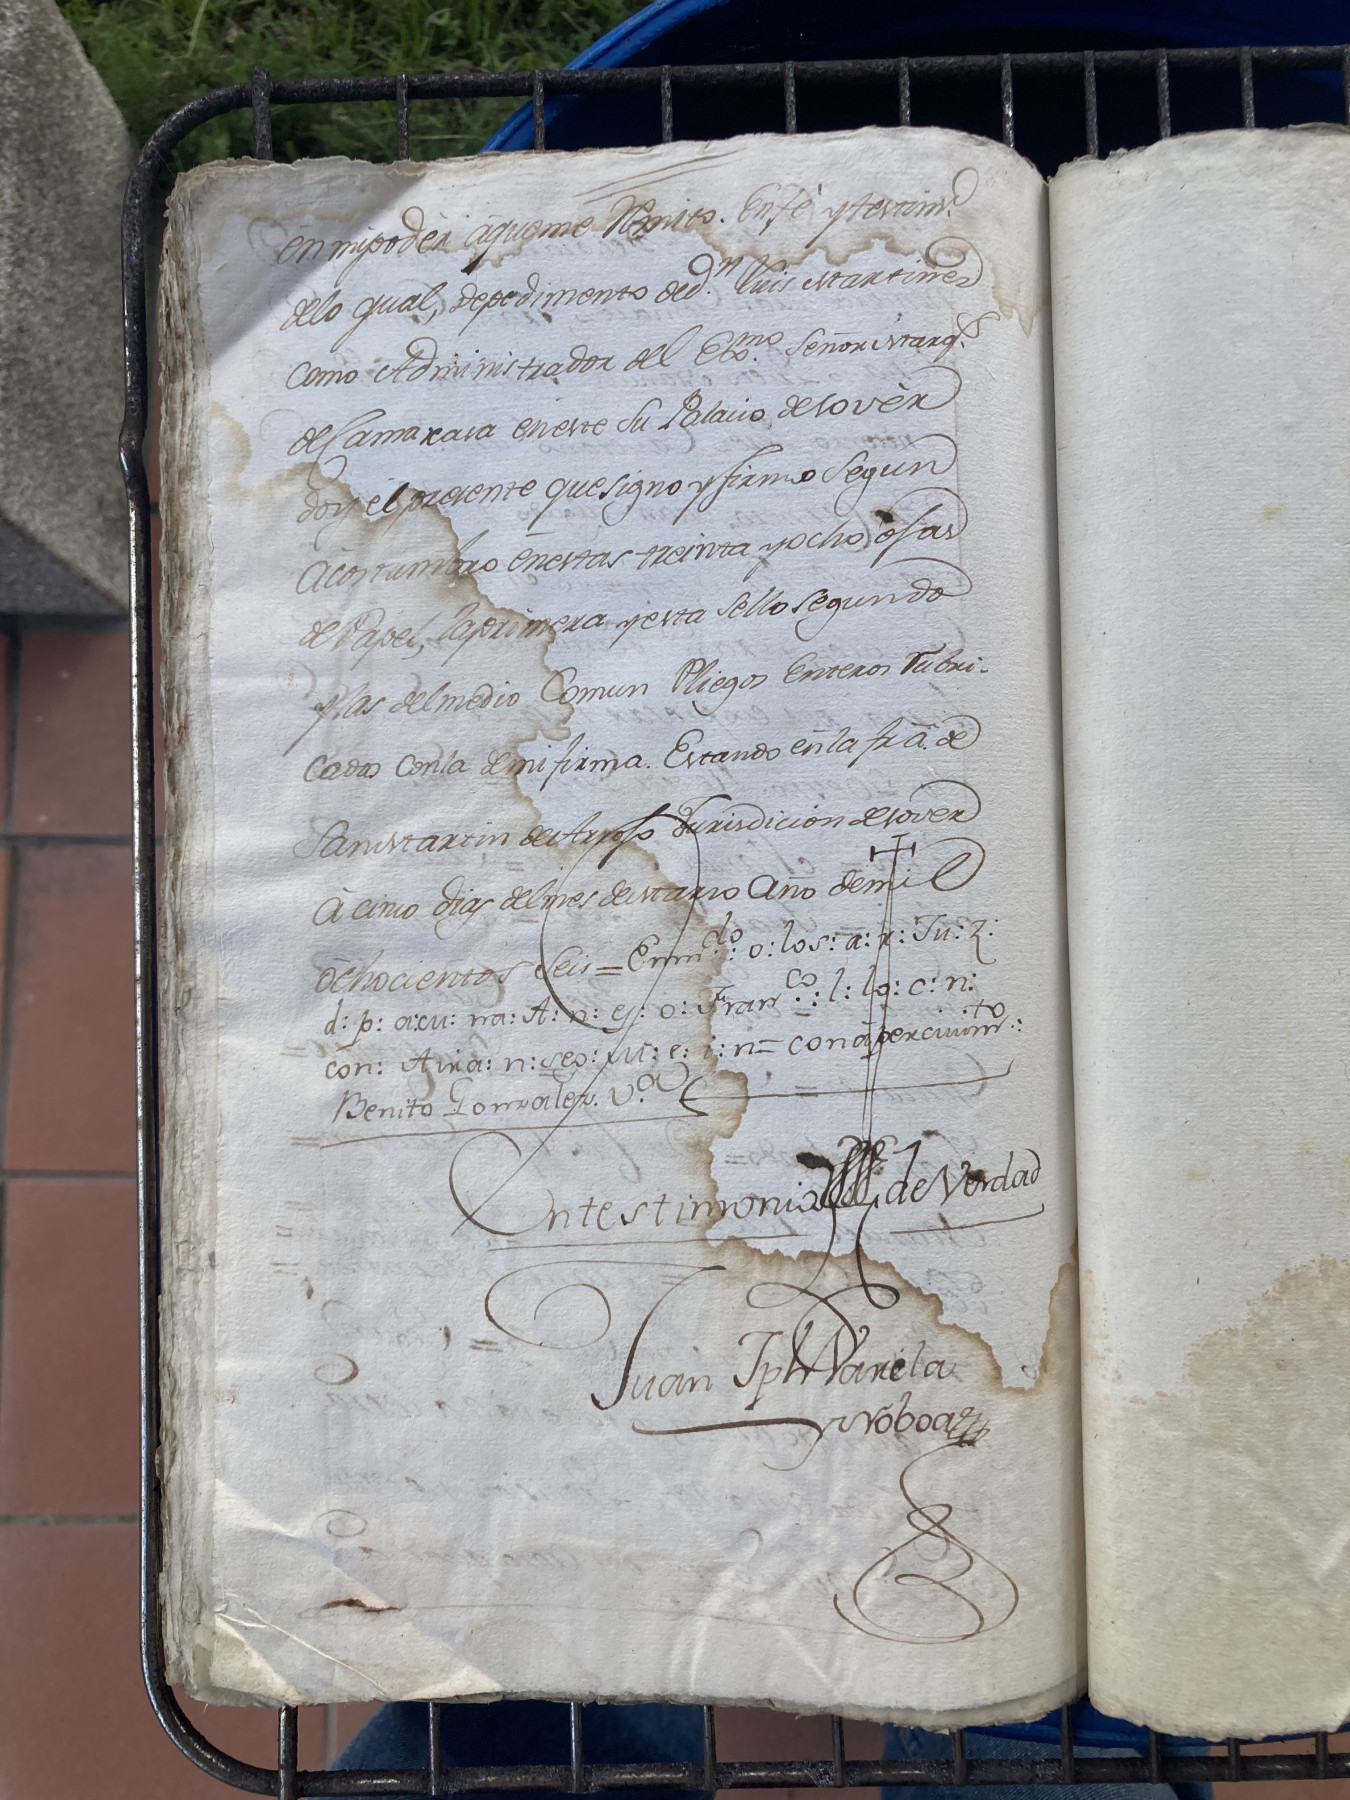 en mi poder a que me Remito. En fè y testim.º
de lo qual, de pedimento de d.ⁿ Luis Martinez
como Administrador del Exmo. Señor Marq.s
de Camarasa en este su Palacio de tovèr
doy el presente que signo y firmo segun
Acostumbro en estas treinta y ocho ojas
de Papel, la primera y esta sello segundo
y las del medio Comun Pliegos Enteros rubri-
cados con la de mi firma. Estando en la frã. de
San Martin de Arrojo Jurisdicion de tover
à cinco dias del mes de Marzo Año de mil
ochocientos seis = Enm.do: o: los: a: r: Ju: z:
d: p: a: cu: na: A: n: e: o: Fran.co: l: lo: c: n:
con: A: n: seo: e: i: n = con apercivim.to:
Benito Gonzalez. V.ª
En testimonio de Verdad
Juan Jph Varela
y Noboa